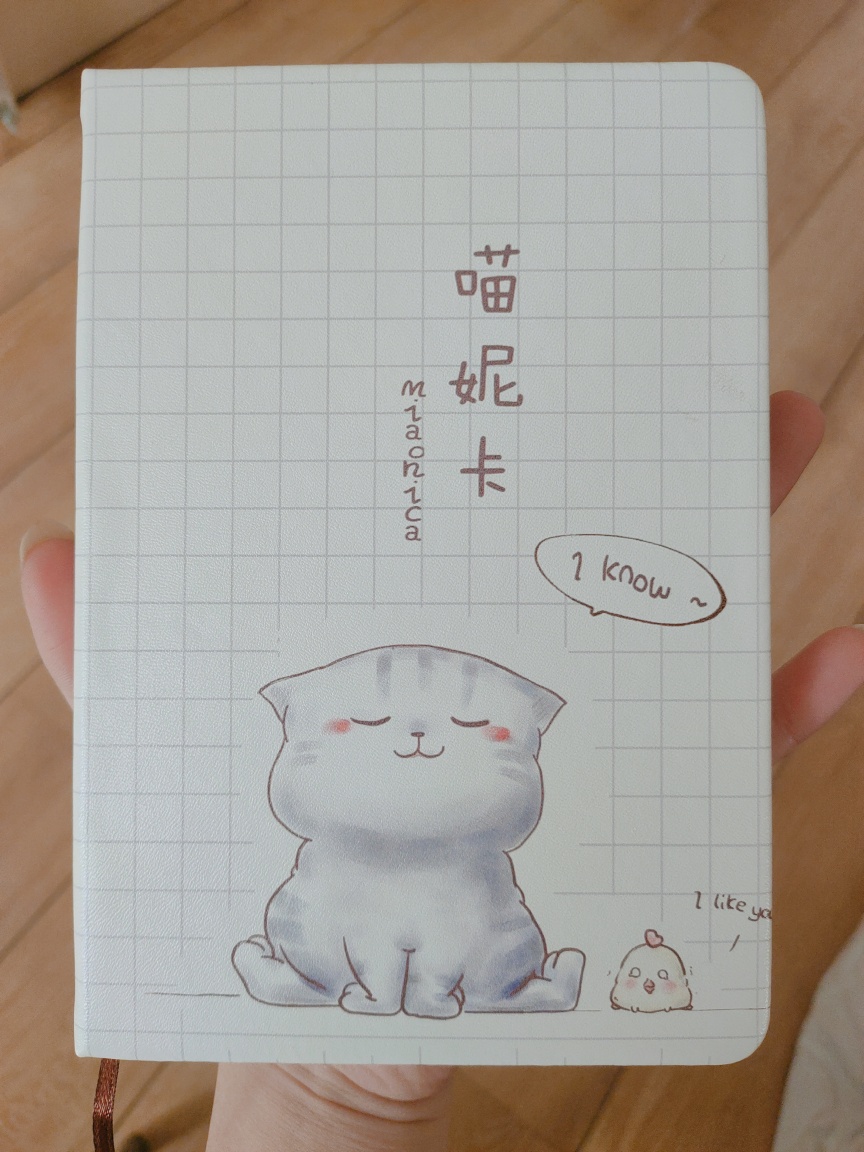 喵妮卡
miaonica
I know ~
I like yo